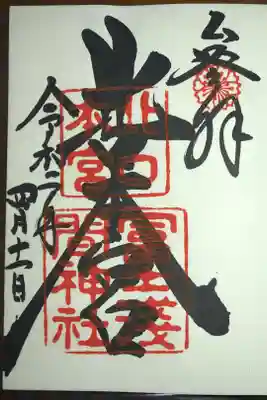 參拝
北口本宮
北口
本宮
冨士淺
間神社
令和二年
四月十一日